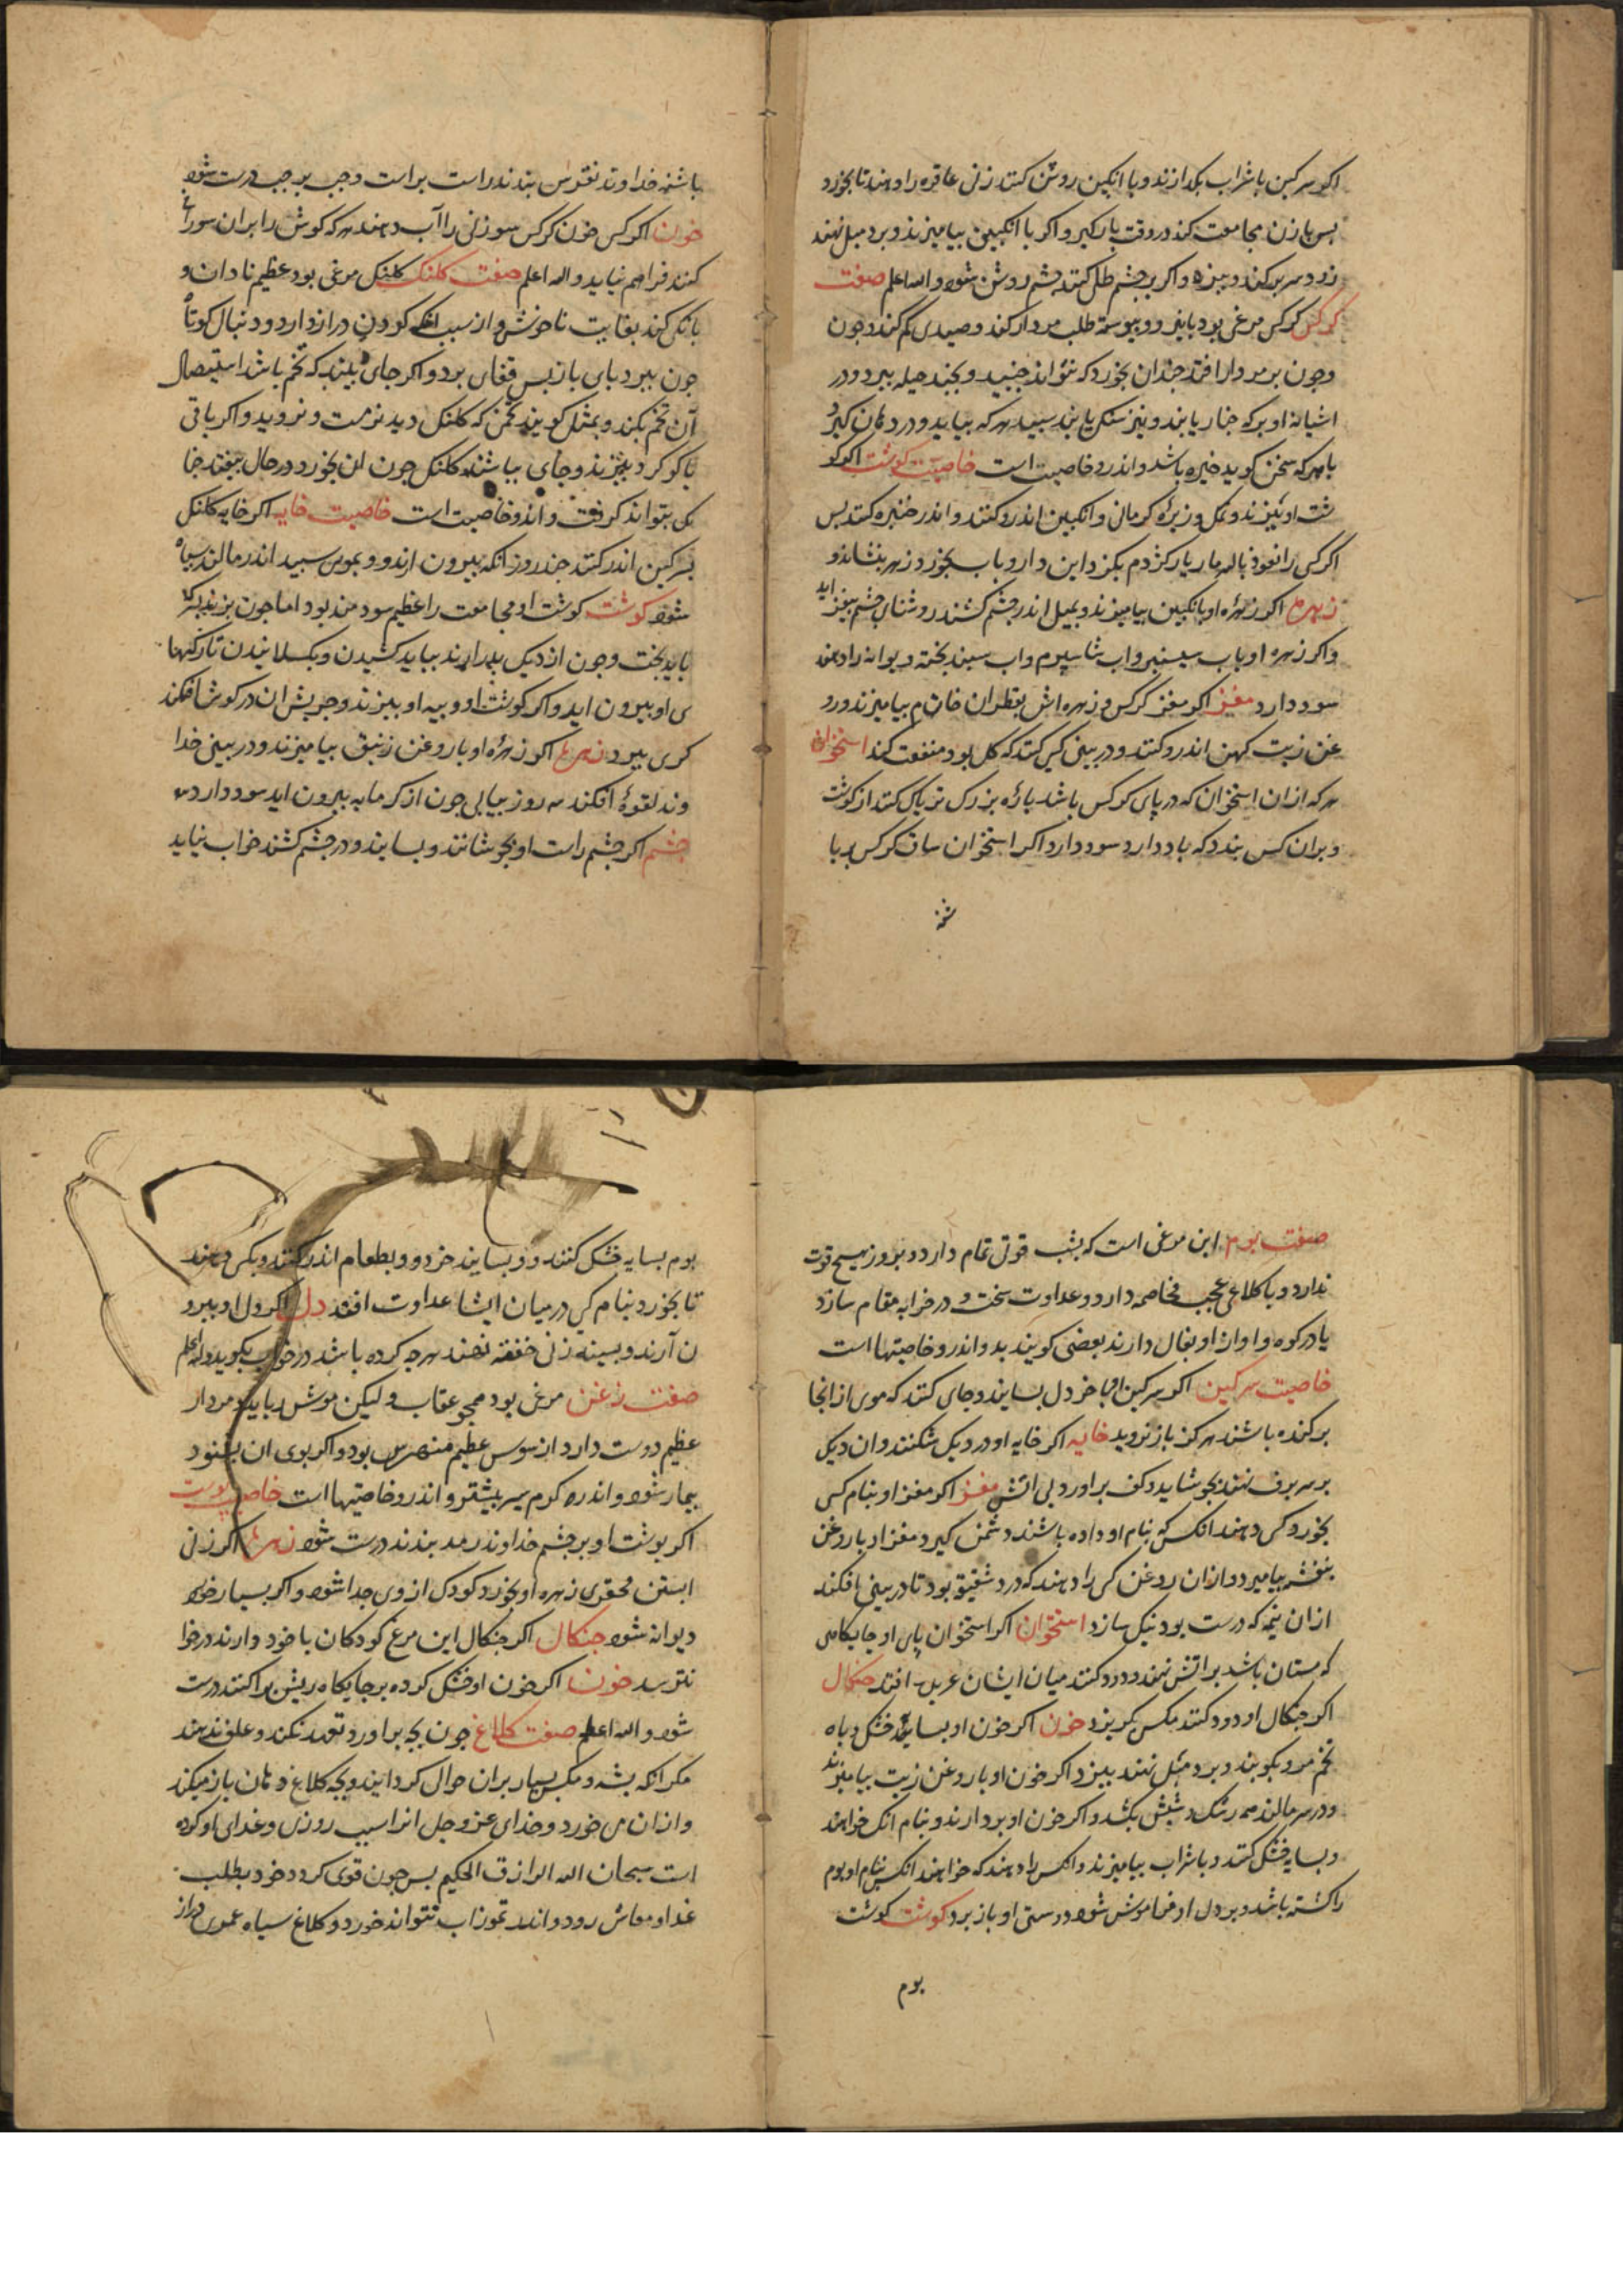 اکر سرکین با شراب بکدازند و با انکبین روشن کنند زنی عاقره را دهند تا بخورد
پس با زن مجامعت کند در وقت بار کیرد و اکر با انکبین بیامیزند و بر دمبل نهند
زود سر برکند و بپزد و اکر بر چشم طلی کنند چشم روشن شود والله اعلم صفت
کرکس کرکس مرغی بود با نیرو و پیوسته طلب مردار کند و صیدی کم کند و چون
وچون بر مردار افتد چندان بخورد که نتواند جنبید و بچند حیله بپرد و در
اشیانه او برک چنار یابند و نیز سنکی یابند سپید هر که بیاید و در دهان کیرد
با هر که سخن کوید خیره باشد و اندرو خاصیت است خاصیت کوشت اکر کو
شت او بپزند و نمک و زیره کرمانی و انکبین اندرو کنند و اندر خنبره کنند پس
اکر کسی را نعوذ بالله مار یا کژدم بکزد این دارو باب بخورد زهر بنشاند و
زهره اکر زهره او بانکبین بیامیزند و بمیل اندر چشم کشند روشنای چشم بیفزاید
واکر زهره او باب سیسنبر واب شاسپرم واب سپند پخته دیوانه را دهند
سود دارد مغز اکر مغز کرکس و زهره اش بقطران خام بیامیزند و رو
غن زیت کهن اندرو کنند و در بینی کسی کنند که کل بود منفعت کند استخوان
هر که از ان استخوان که در پای کرکس باشد پاره بزرک تر پاک کنند از کوشت
و بران کس بندد که باد دارد سود دارد اکر استخوان ساق کرکس با پا
شنه
باشنه خداوند نقرس بندند راست بر است و چپ بر چپ درست شود
خون اکر کسی خون کرکس سوزنی را آب دهند هر که کوش را بران سوراخ
کنند فراهم نیاید والله اعلم صفت کلنک کلنک مرغی بود عظیم نادان و
بانکی کند بغایت ناخوش و از سبب انکه کردن دراز دارد و دنبال کوتاه
چون بپرد پای باز پس قفای برد و اکر جای بیند که تخم باشد استیصال
آن تخم بکند و بمثل کویند تخمی که کلنک دید نرست و نروید و اکر باقی
با کوکرد بپزند و جای بپاشند کلنک چون ان بخورد در حال بیفتد چنا
نک بتواند کرفت و اندرو خاصیت است خاصیت خایه اکر خایه کلنک
بسرکین اندر کنند چند روز انکه بیرون ارند و بموی سپید اندر مالند سیاه
شود کوشت کوشت او مجامعت را عظیم سودمند بود اما چون بپزند بسرکه
باید پخت و چون از دیک بدر ارند بباید کشیدن و بکسلانیدن تا رکها
ی او بیرون اید و اکر کوشت او و پیه او بپزند و چربش ان در کوش افکند
کری ببرد زهره اکر زهره او با روغن زنبق بیامیزند و در بینی خدا
وند لقوه افکند سه روز پیاپی چون از کرمابه بیرون اید سود دارد
چشم اکر چشم راست او بجوشانند و بسایند و در چشم کشند خواب نیاید
صفت بوم این مرغی است که بشب قوتی تمام دارد و بروز هیچ قوت
ندارد و با کلاغ عجب مخاصمه دارد و عداوت سخت و در خرابه مقام سازد
یا در کوه و اواز او بفال دارند بعضی کویند بد و اندرو خاصیتها است
خاصیت سرکین اکر سرکین او با خردل بسایند و جای کنند که موی از انجا
برکنده باشند هرکز باز نروید خایه اکر خایه او در دیک شکنند و ان دیک
بر سر برف نهند بجوشاید و کف براورد بی اتش مغز اکر مغز او بنام کسی
بخورد کسی دهند انکس که بنام او داده باشند دشمن کیرد مغز او با روغن
بنفشه بیامیزد و ازان روغن کسی را دهند که درد شقیقه بود تا در بینی افکند
ازان نیمه که درست بود نیک سازد استخوان اکر استخوان پای او جایکاهی
که مستان باشد بر اتش نهند و دود کنند میان ایشان عربده افتد چنکال
اکر چنکال او دود کنند مکس بکریزد خون اکر خون او بسایه خشک و باه
تخم مرو بکوبند و بر دمبل نهند بپزد و اکر خون او با روغن زیت بیامیزند
و در سر مالند همه رشک و شپش بکشد و اکر خون او بردارند و بنام انک خواهند
و بسایه خشک کنند و با شراب بیامیزند و انکس را دهند که خواهند انکس بنام او بوم
را کشته باشد و بر دل او فراموش شود و دوستی او باز برد کوشت کوشت
بوم
بوم بسایه خشک کنند و بسایند خرد و بطعام اندر کنند و بکسی دهند
تا بخورد بنام کسی در میان ایشا عداوت افتد دل اکر دل او بیرو
ن آرند و بسینه زنی خفته نهند هر چه کرده باشد در خواب بکوید والله اعلم
صفت زغن مرغی بود همچو عقاب و لیکن موش رباید و مردار
عظیم دوست دارد از موس عظیم منهرس بود و اکر بوی ان بشنود
بیمار شود و اندر کرم سیر بیشتر و اندرو خاصیتها است خاصیت پوست
اکر پوست او بر چشم خداوند رمد بندند درست شود زهره اکر زنی
ابستن محقری زهره او بخورد کودک از وی جدا شود و اکر بسیار خورد
دیوانه شود چنکال اکر چنکال این مرغ کودکان با خود دارند در خوا
نترسد خون اکر خون او خشک کرده بر جایکاه ریش پراکنند درست
شود والله اعلم صفت کلاغ چون بچه براورد تعهد نکند و علف ندهند
مکر انکه پشه و مکس بسیار بران حوالی کرد ایند و بچه کلاغ دهان باز میکند
و ازان می خورد و خدای عزوجل انرا سبب روزی و غدای او کرده
است سبحان الله الرازق الحکیم پس چون قوی کردد خود بطلب
غدا و معاش رود و اندر تموز اب نتواند خورد و کلاغ سیاه عمری دراز